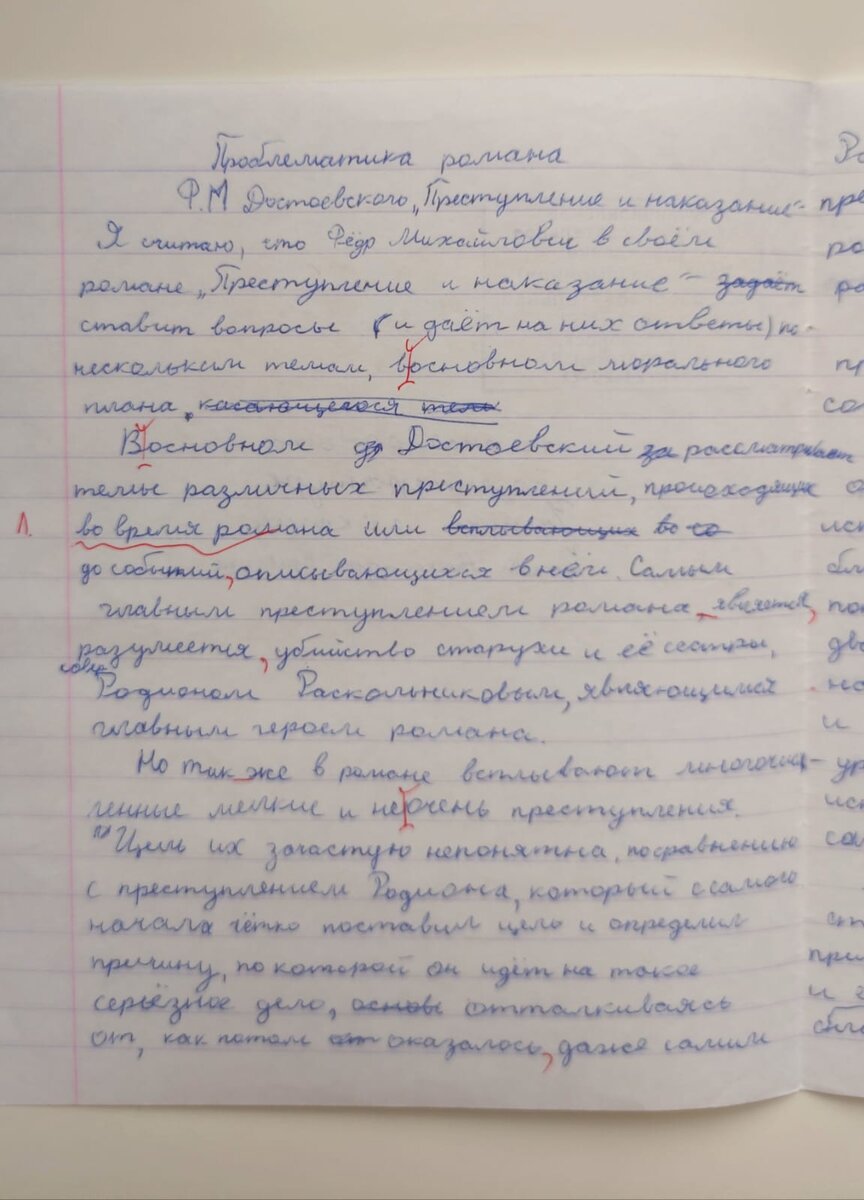 Проблематика романа
Ф.М Достоевского „Преступление и наказание"
Я считаю, что Фёдр Михайлович в своём
романе „Преступление и наказание" задаёт
ставит вопросы (и даёт на них ответы) по
нескольким темам, восновном морального
плана, касающегося
Восновном Достоевский рассматривает
темы различных преступлений, происходящих
Л. во время романа или всплывающих во со
до событий, описывающихся в нём. Самым
главным преступлением романа является,
разумеется, убийство старухи и её сестры,
Родионом Раскольниковым, являющимся
главным героем романа.
Но так же в романе всплывают многочис-
ленные мелкие и неочень преступления.
Цель их зачастую непонятна, посравнению
с преступлением Родиона, который ссамого
начала чётко поставил цель и определил
причину, по которой он идёт на такое
серьёзное дело, основ отталкиваясь
от, как потом от оказалось, даже самим
Ро
пре
ро
ра
пр
со
о
ис
бл
по
дво
на
и
ур
ис
са
ст
при
и